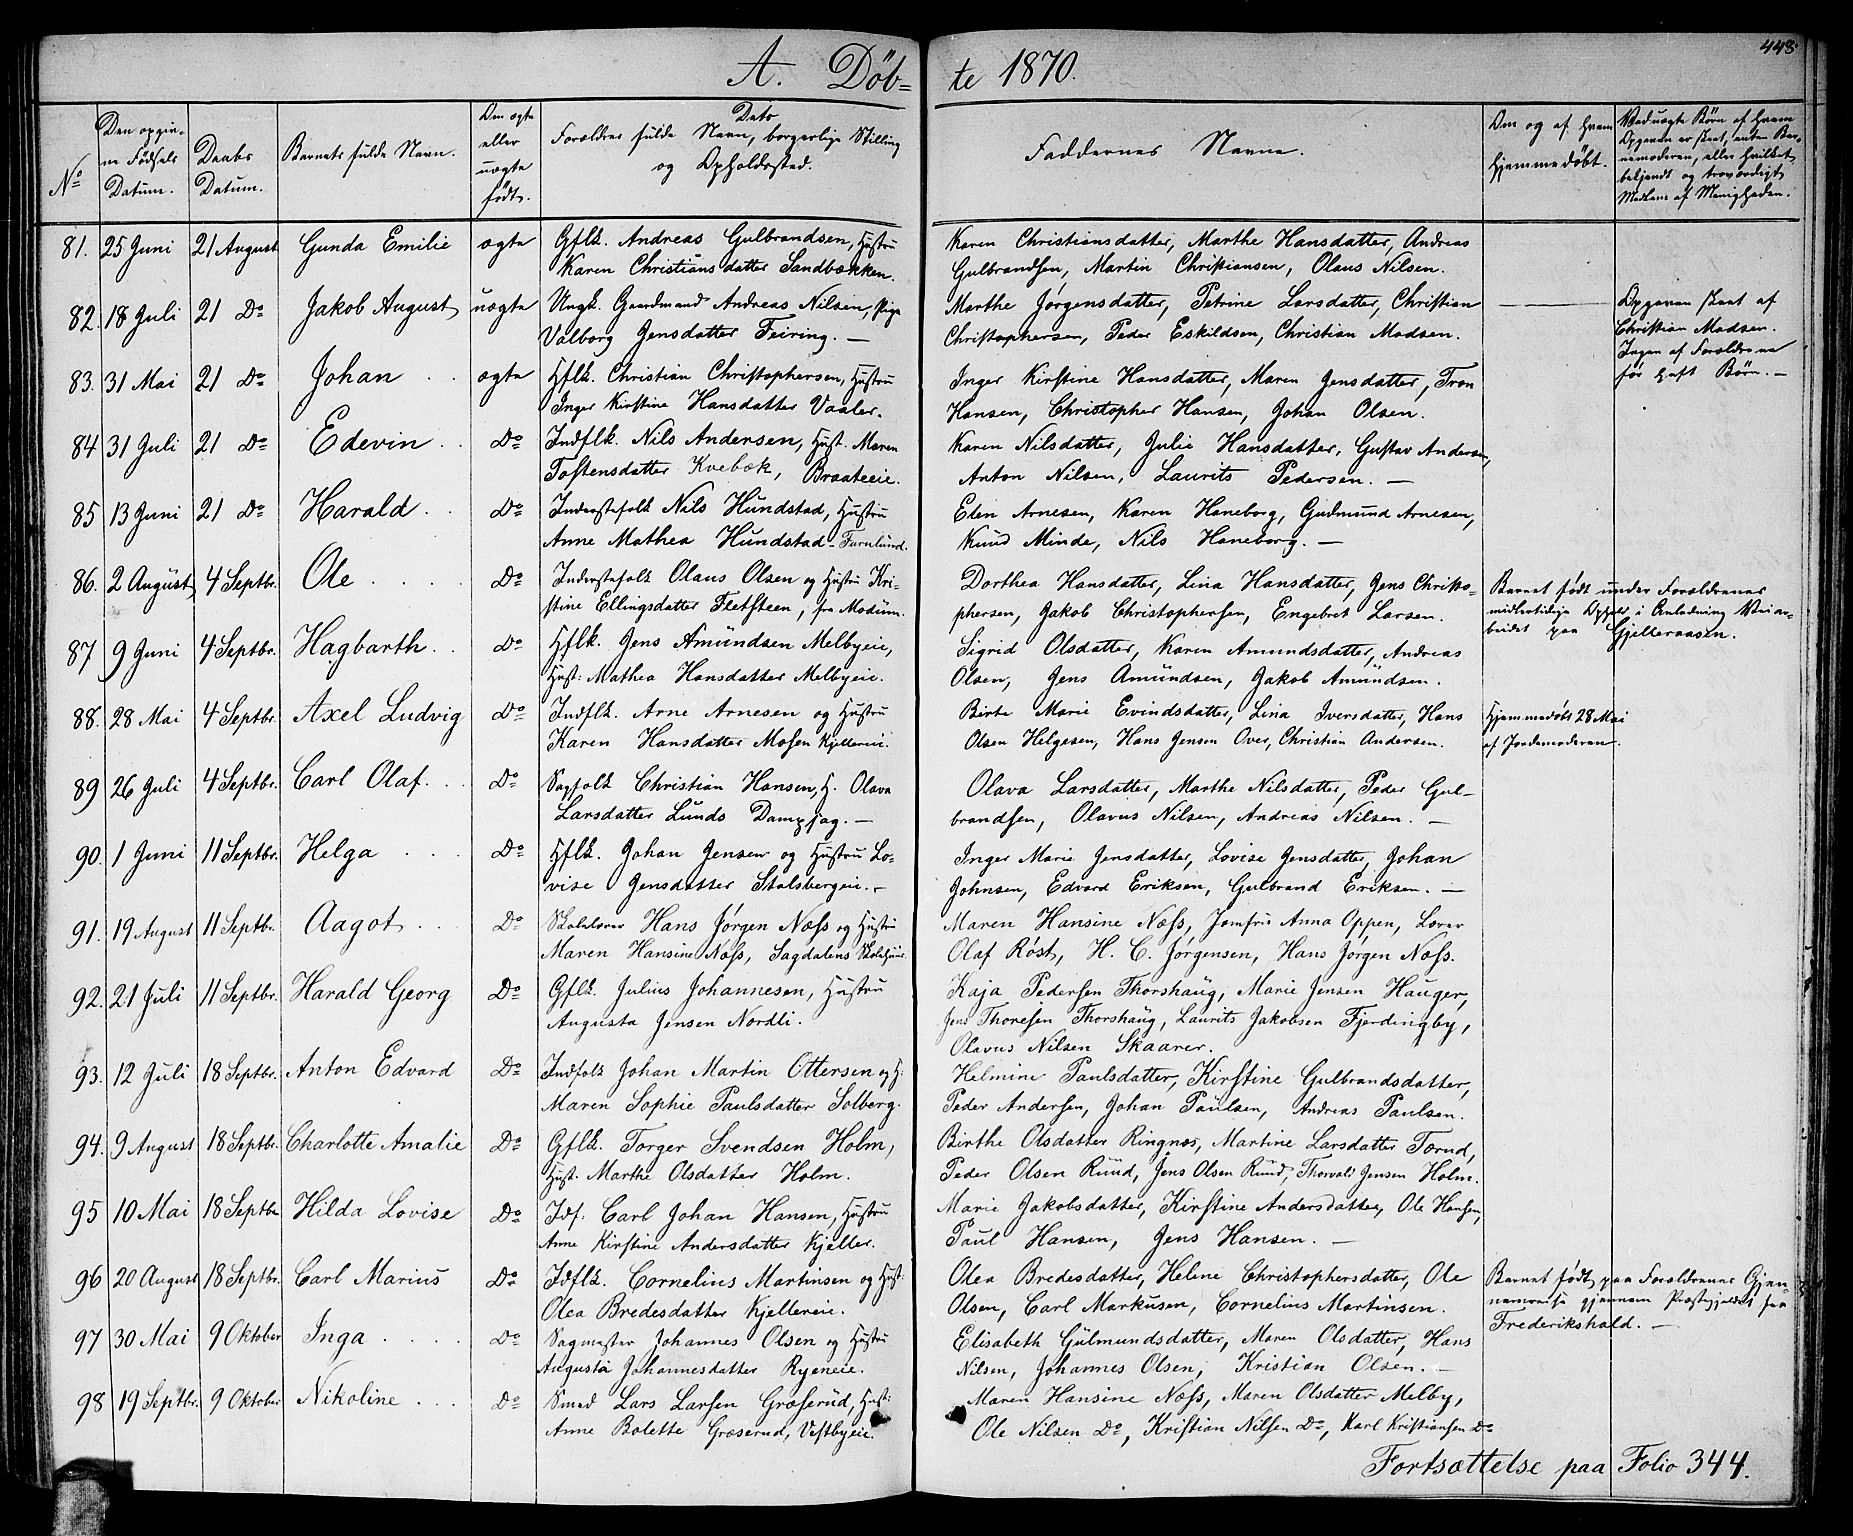 448
A. Døb= te 1870.
No
Den opgiv=
ne Fødsels
Datum.
Daabs
Datum.
Barnets fulde Navn.
Om ægte
eller
uægte
født.
Dets
Forældres fulde Navn, borgerlige Stilling
og Opholdssted.
Faddernes Navne.
Om og af hvem
hjemmedøbt.
Ved uægte Børn af hvem
Opgaven er skeet, enten Bar-
nemoderen, eller hvilket
bekjendt og troværdigt
Medlem af Menigheden.
81. 25 Juni 21 August Gunda Emilie ægte Gflk. Andreas Gulbrandsen, Hustru Karen Christiansdatter, Marthe Hansdatter, Andreas
Karen Christiansdatter Sandbækken. Gulbrandsen, Martin Christiansen, Olaus Nilsen.
82. 18 Juli 21 Do Jakob August uægte Ungk. Gaardmand Andreas Nilsen, Pige Marthe Jørgensdatter, Petrine Larsdatter, Christian — Opgaven skeet af
Valborg Jensdatter Feiring. — Christophersen, Peder Eskildsen, Christian Madsen. Christian Madsen.
Ingen af Forældrene
før havt Børn. —
83. 31 Mai 21 Do Johan . . ægte Hflk. Christian Christophersen, Hustru Inger Kirstine Hansdatter, Maren Jensdatter, Tron
Inger Kirstine Hansdatter Vaaler. Hansen, Christopher Hansen, Johan Olsen.
84 31 Juli 21 Do Edevin . . Do Indflk. Nils Andersen, Hust. Maren Karen Nilsdatter, Julie Hansdatter, Gustav Andersen,
Tostensdatter Kvebæk, Braateeie. Anton Nilsen, Laurits Pedersen. —
85 13 Juni 21 Do Harald . Do Inderstefolk Nils Hundstad, Hustru Elen Arnesen, Karen Haneborg, Gudmund Arnesen,
Anne Mathea Hundstad - Furulund. Knud Minde, Nils Haneborg. —
86. 2 August 4 Septbr. Ole . . . . Do Inderstefolk Olaus Olsen og Hustru Kri- Dorthea Hansdatter, Lina Hansdatter, Jens Christo- Barnet født under Forældrenes
stine Ellingsdatter Fletsteen, fra Modum. phersen, Jakob Christophersen, Engebret Larsen. midlertidige Ophold i Anledning Veiar-
beidet paa Gjelleraasen.
87 9 Juni 4 Septbr. Hagbarth . . Do Hflk. Jens Amundsen Melbyeie, Sigrid Olsdatter, Karen Amundsdatter, Andreas
Hust: Mathea Hansdatter Melbyeie. Olsen, Jens Amundsen, Jakob Amundsen.
88. 28 Mai 4 Septbr. Axel Ludvig Do Indflk. Arne Arnesen og Hustru Birte Marie Evindsdatter, Lina Iversdatter, Hans Hjemmedøbt 28 Mai
Karen Hansdatter Mosen Kjellereie. Olsen Helgesen, Hans Jensen Over, Christian Andersen. af Jordemoderen.
89 26 Juli 4 Septbr. Carl Olaf. . . Do Sagfolk Christian Hansen, H. Olava Olava Larsdatter, Marthe Nilsdatter, Peder Gul-
Larsdatter Lunds Dampsag. — brandsen, Olavus Nilsen, Andreas Nilsen. —
90. 1 Juni 11 Septbr. Helga . . . Do Hflk. Johan Jensen og Hustru Lo- Inger Marie Jensdatter, Lovise Jensdatter, Johan
vise Jensdatter Stalsbergeie. — Johnsen, Edvard Eriksen, Gulbrand Eriksen. —
91. 19 August 11 Septbr. Aagot . . . Do Skolelærer Hans Jørgen Næss og Hustru Maren Hansine Næss, Jomfru Anna Oppen, Lærer
Maren Hansine Næss, Sagdalens Skolehuus. Olaf Røst, H. C. Jørgensen, Hans Jørgen Næss.
92. 21 Juli 11 Septbr. Harald Georg Do Gflk. Julius Johannesen, Hustru Kaja Pedersen Thorshaug, Marie Jensen Hauger,
Augusta Jensen Nordli. Jens Thoresen Thorshaug, Laurits Jakobsen Fjerdingby,
Olavus Nilsen Skaarer.
93. 12 Juli 18 Septbr. Anton Edvard Do Indfolk Johan Martin Ottersen og H: Helmine Paulsdatter, Kirstine Gulbrandsdatter,
Maren Sophie Paulsdatter Solberg. Peder Andersen, Johan Paulsen, Andreas Paulsen.
94. 9 August 18 Septbr. Charlotte Amalie Do Gflk. Torger Svendsen Holm, Birthe Olsdatter Ringnæs, Martine Larsdatter Tærud,
Hust. Marthe Olsdatter Holm. Peder Olsen Ruud, Jens Olsen Ruud, Thorvald Jensen Holm.
95 10 Mai 18 Septbr Hilda Lovise Do Idf. Carl Johan Hansen, Hustru Marie Jakobsdatter, Kirstine Andersdatter, Ole Hansen,
Anne Kirstine Andersdatter Kjeller. Paul Hansen, Jens Hansen. —
96 20 August 18 Septbr. Carl Marius Do Idflk. Cornelius Martinsen og Hust. Olea Bredesdatter, Helene Christophersdatter, Ole Barnet født paa Forældrenes Gjen-
Olea Bredesdatter Kjellereie. Olsen, Carl Markusen, Cornelius Martinsen. nemreise gjennem Præstegjeldet fra
Frederikshald. —
97 30 Mai 9 Oktober Inga . . . . Do Sagmester Johannes Olsen og Hustru Elisabeth Gulmundsdatter, Maren Olsdatter, Hans
Augusta Johannesdatter Ryeneie. Nilsen, Johannes Olsen, Kristian Olsen. —
98 19 Septbr. 9 Oktober Nikoline . . . Do Smed Lars Larsen Græserud, Hust: Maren Hansine Næss, Maren Olsdatter Melby,
Anne Bolette Græserud, Vestbyeie. Ole Nilsen Do, Kristian Nilsen Do, Karl Kristiansen Do
Fortsættelse paa Folio 344.